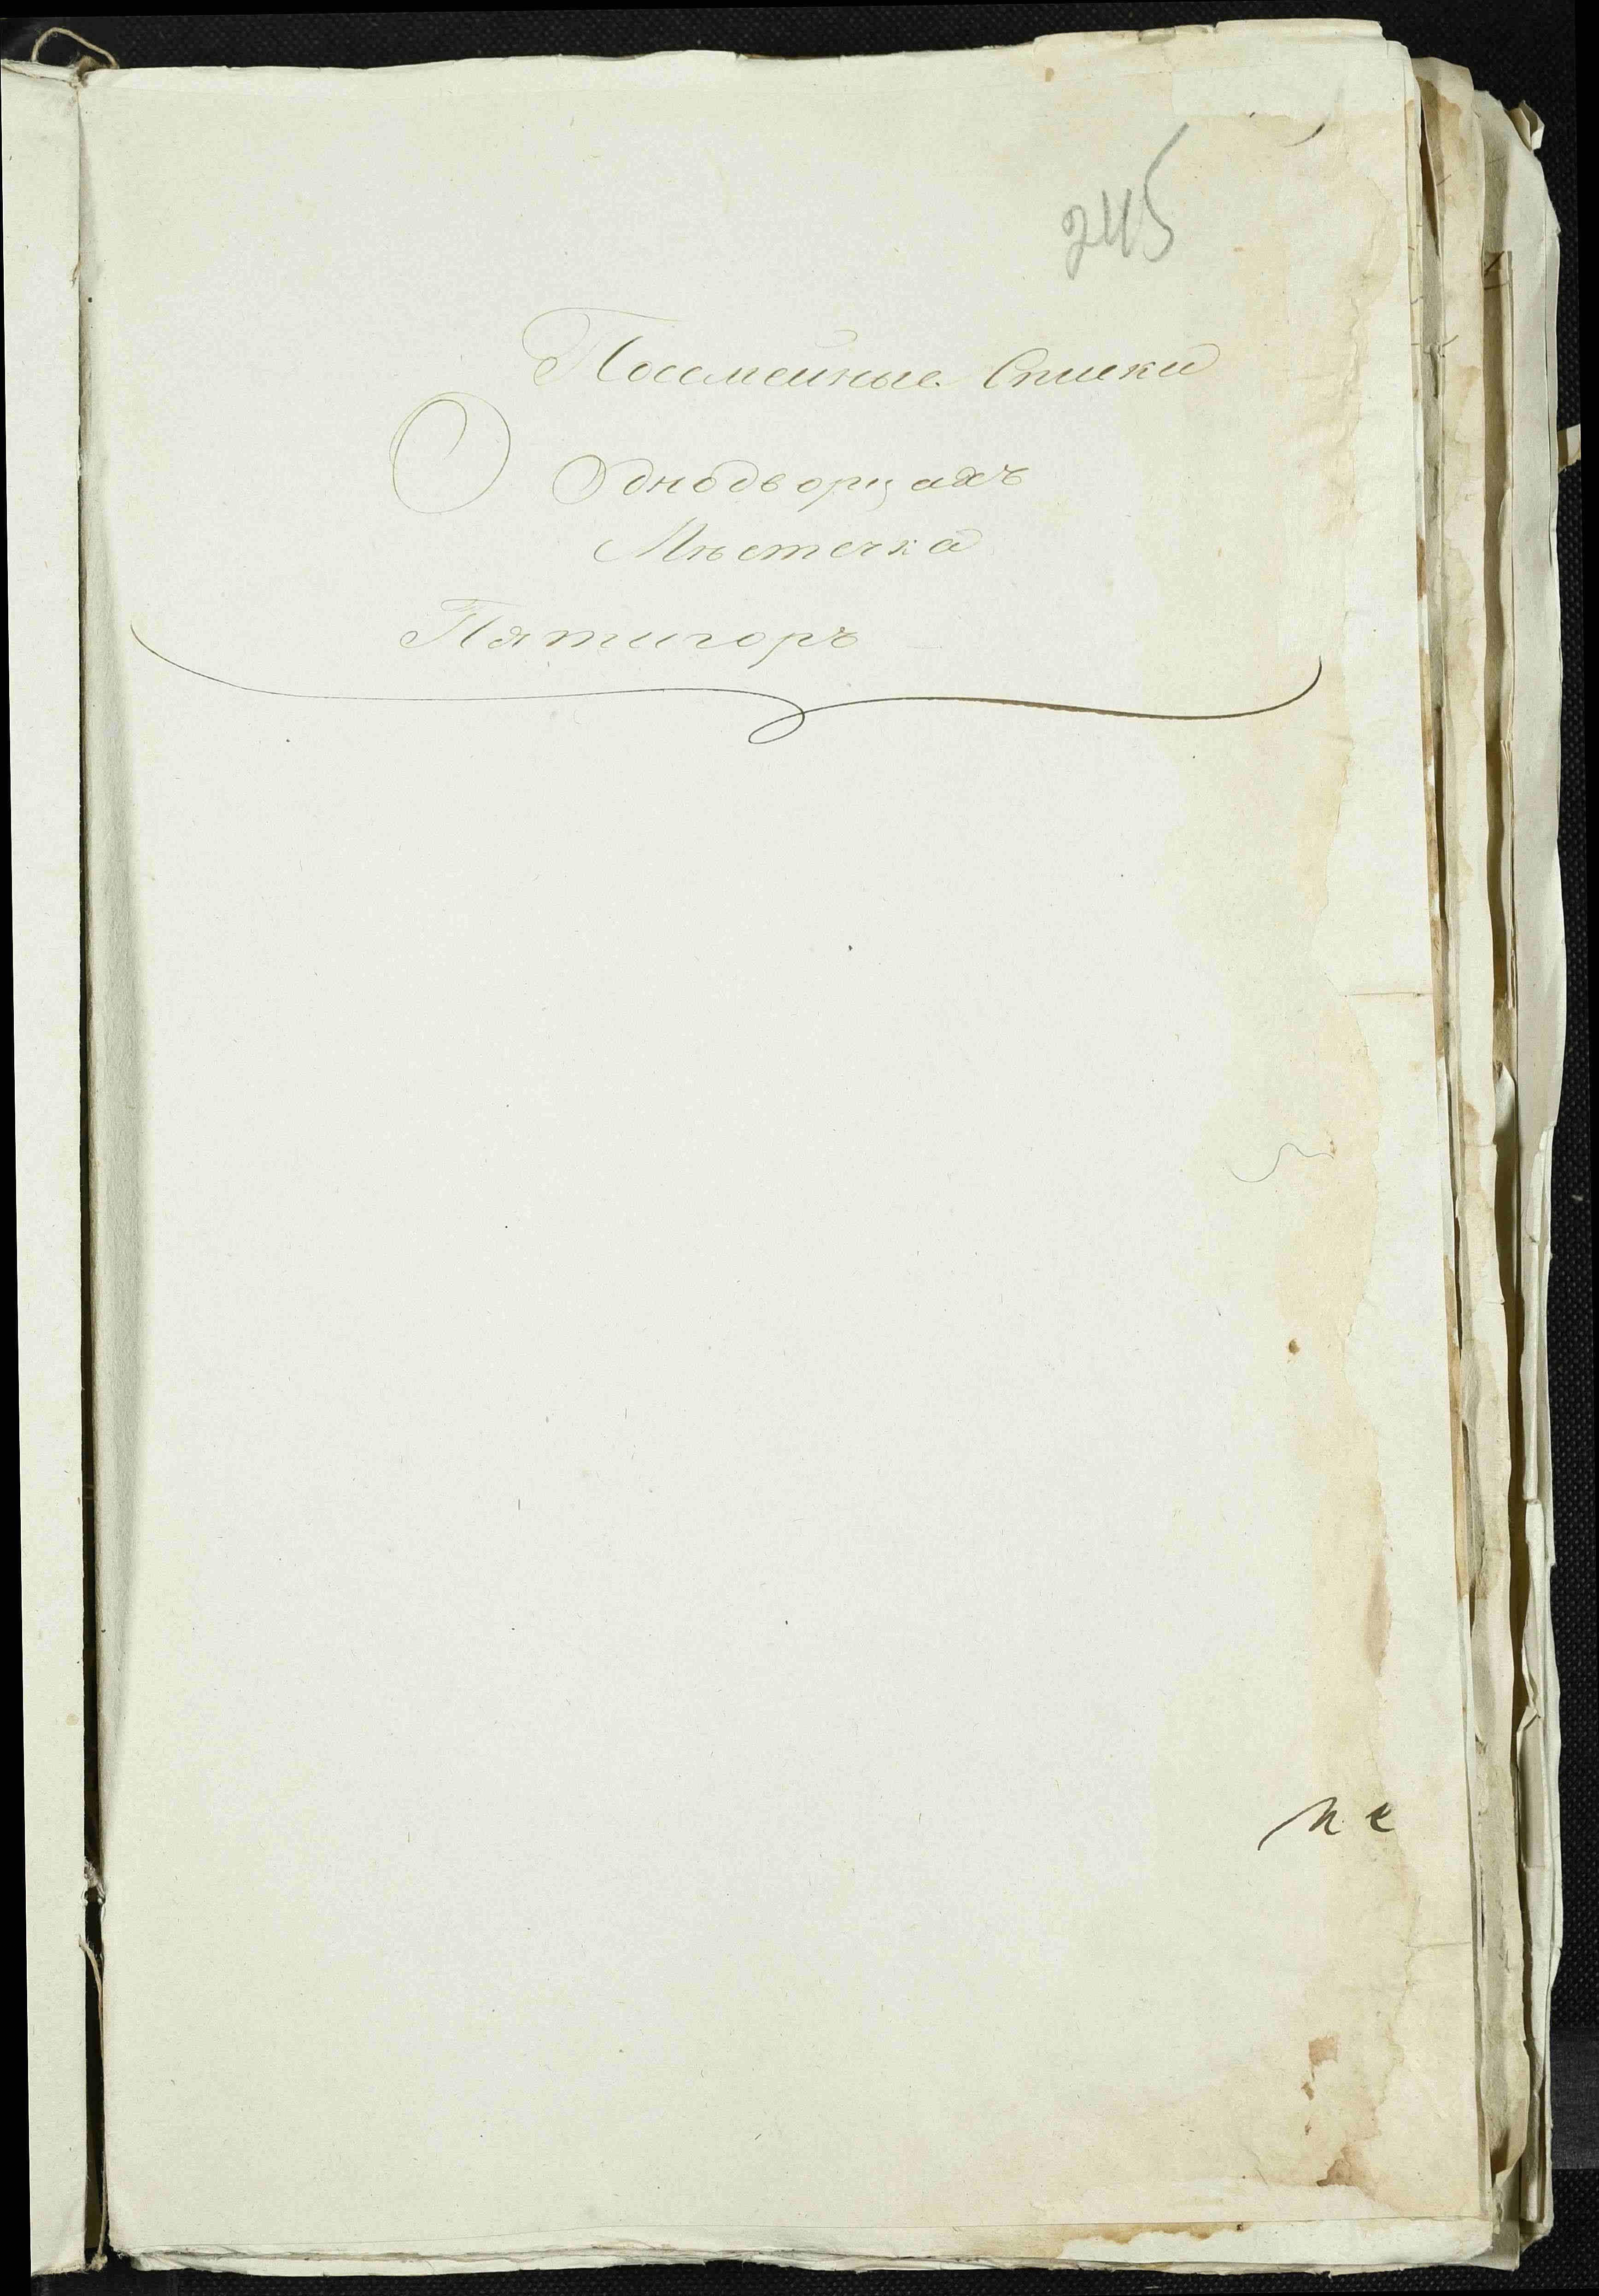 245
Посемейные Списки
О Однодворцахъ
Мѣстечка
Пятигоръ